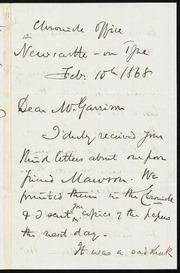 Chronicle Office
Newcastle-on Tyne
Feb: 10th 1868
Dear Mr Garrison
I duly received your
kind letters about our poor
friend Mawson. We
printed them in the Chronicle
& I sent you copies of the papers
the next day.
It was a sad shock